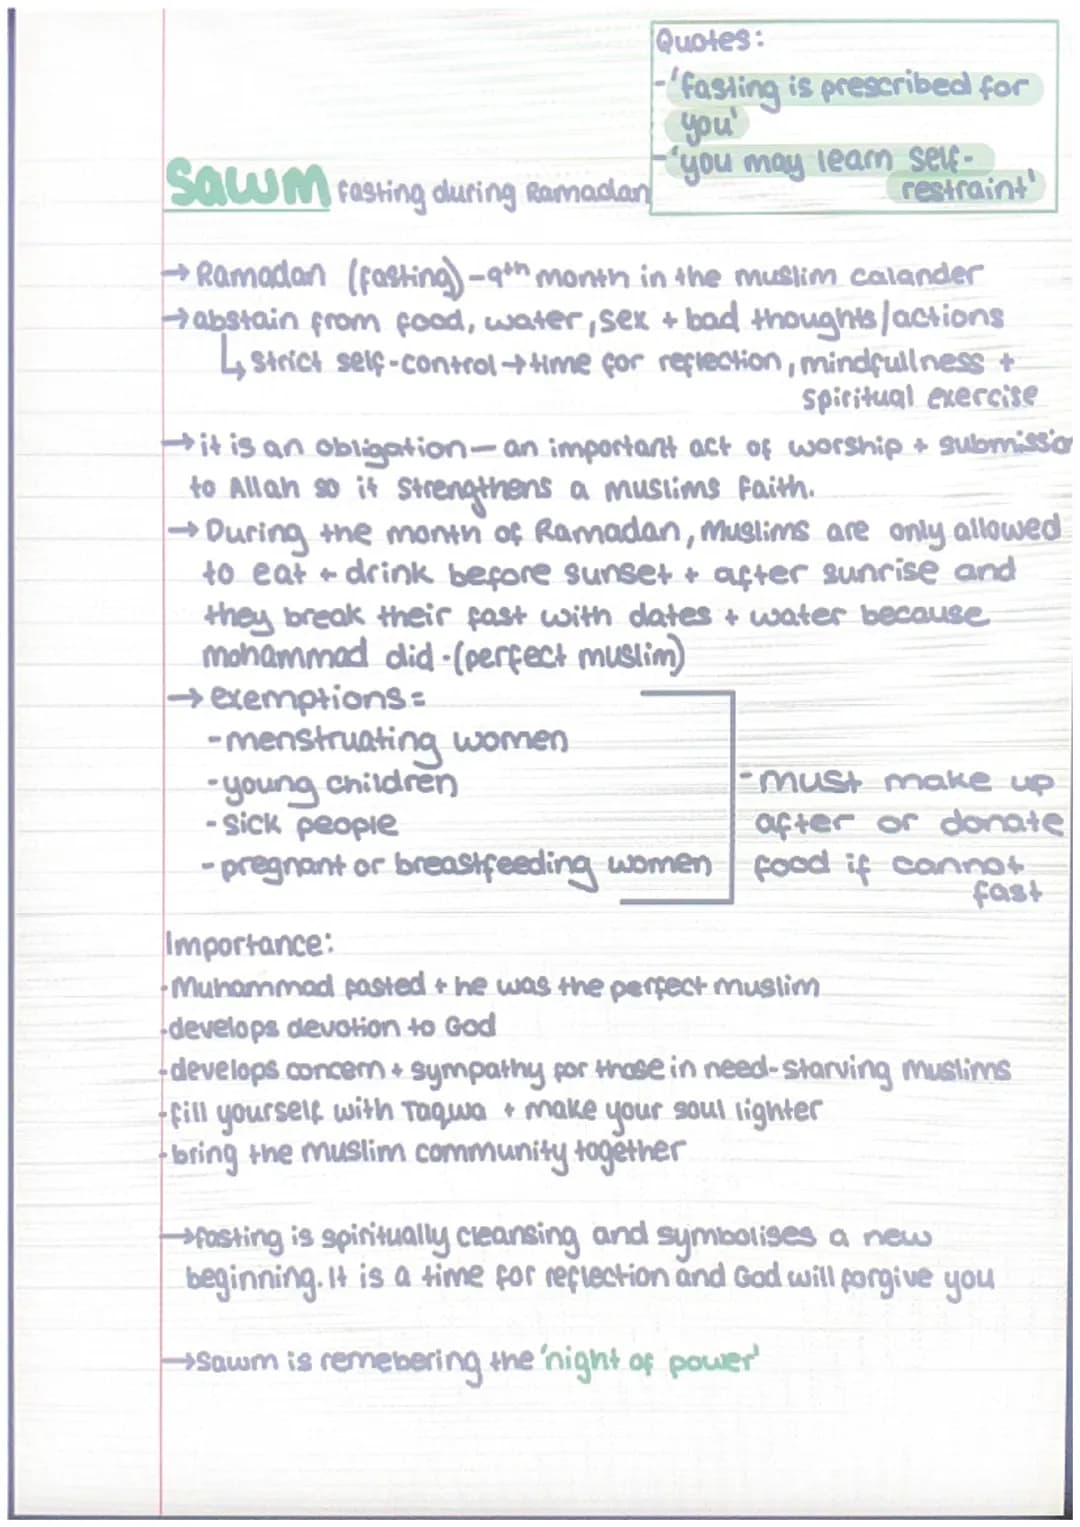 Quotes:
-'fasting is prescribed for
you'
-'you may learn self-
restraint'
Sawm fasting during Ramadan
→ Ramadan (fasting) - 9th month in the muslim calander
→ abstain from food, water, sex + bad thoughts/actions
↳ strict self-control → time for reflection, mindfullness +
spiritual exercise
→ it is an obligation - an important act of worship + submission
to Allah so it strengthens a muslims faith.
→ During the month of Ramadan, Muslims are only allowed
to eat + drink before sunset + after sunrise and
they break their fast with dates + water because
mohammad did - (perfect muslim)
→ exemptions =
- menstruating women
- young children
- sick people
- pregnant or breastfeeding women
- must make up
after or donate
food if cannot
fast
Importance:
- Muhammad fasted + he was the perfect muslim
- develops devotion to God
- develops concern + sympathy for those in need - starving Muslims
- fill yourself with Taqwa + make your soul lighter
- bring the muslim community together
→ fasting is spiritually cleansing and symbolises a new
beginning. It is a time for reflection and God will forgive you
→ Sawm is remebering the 'night of power'